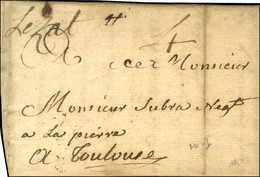 Lezat
4
A Monsieur
Monsieur Subra Neg.t
a la pierre
a Toulouse